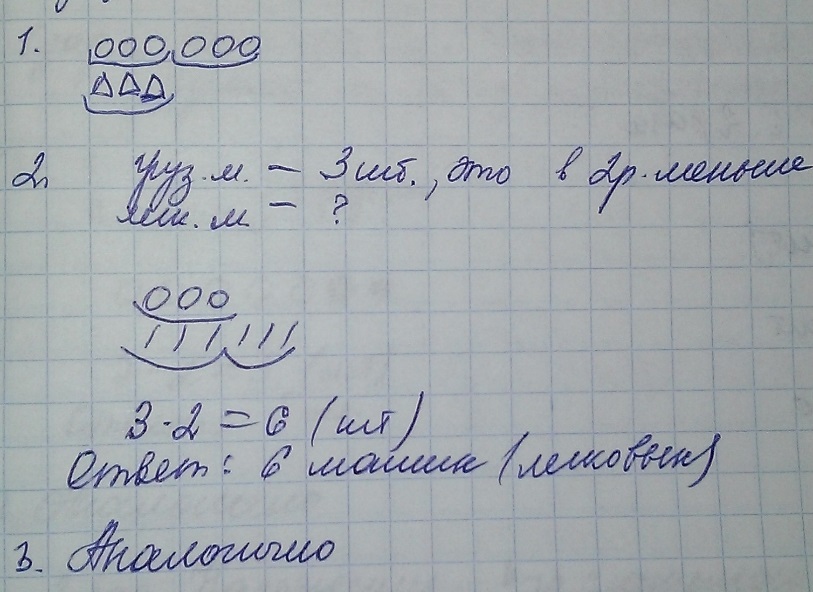 1.
2. груз. м. – 3 шт., это в 2 р. меньше
лег. м – ?
3 · 2 = 6 (шт)
Ответ: 6 машин (легковых)
3. Аналогично